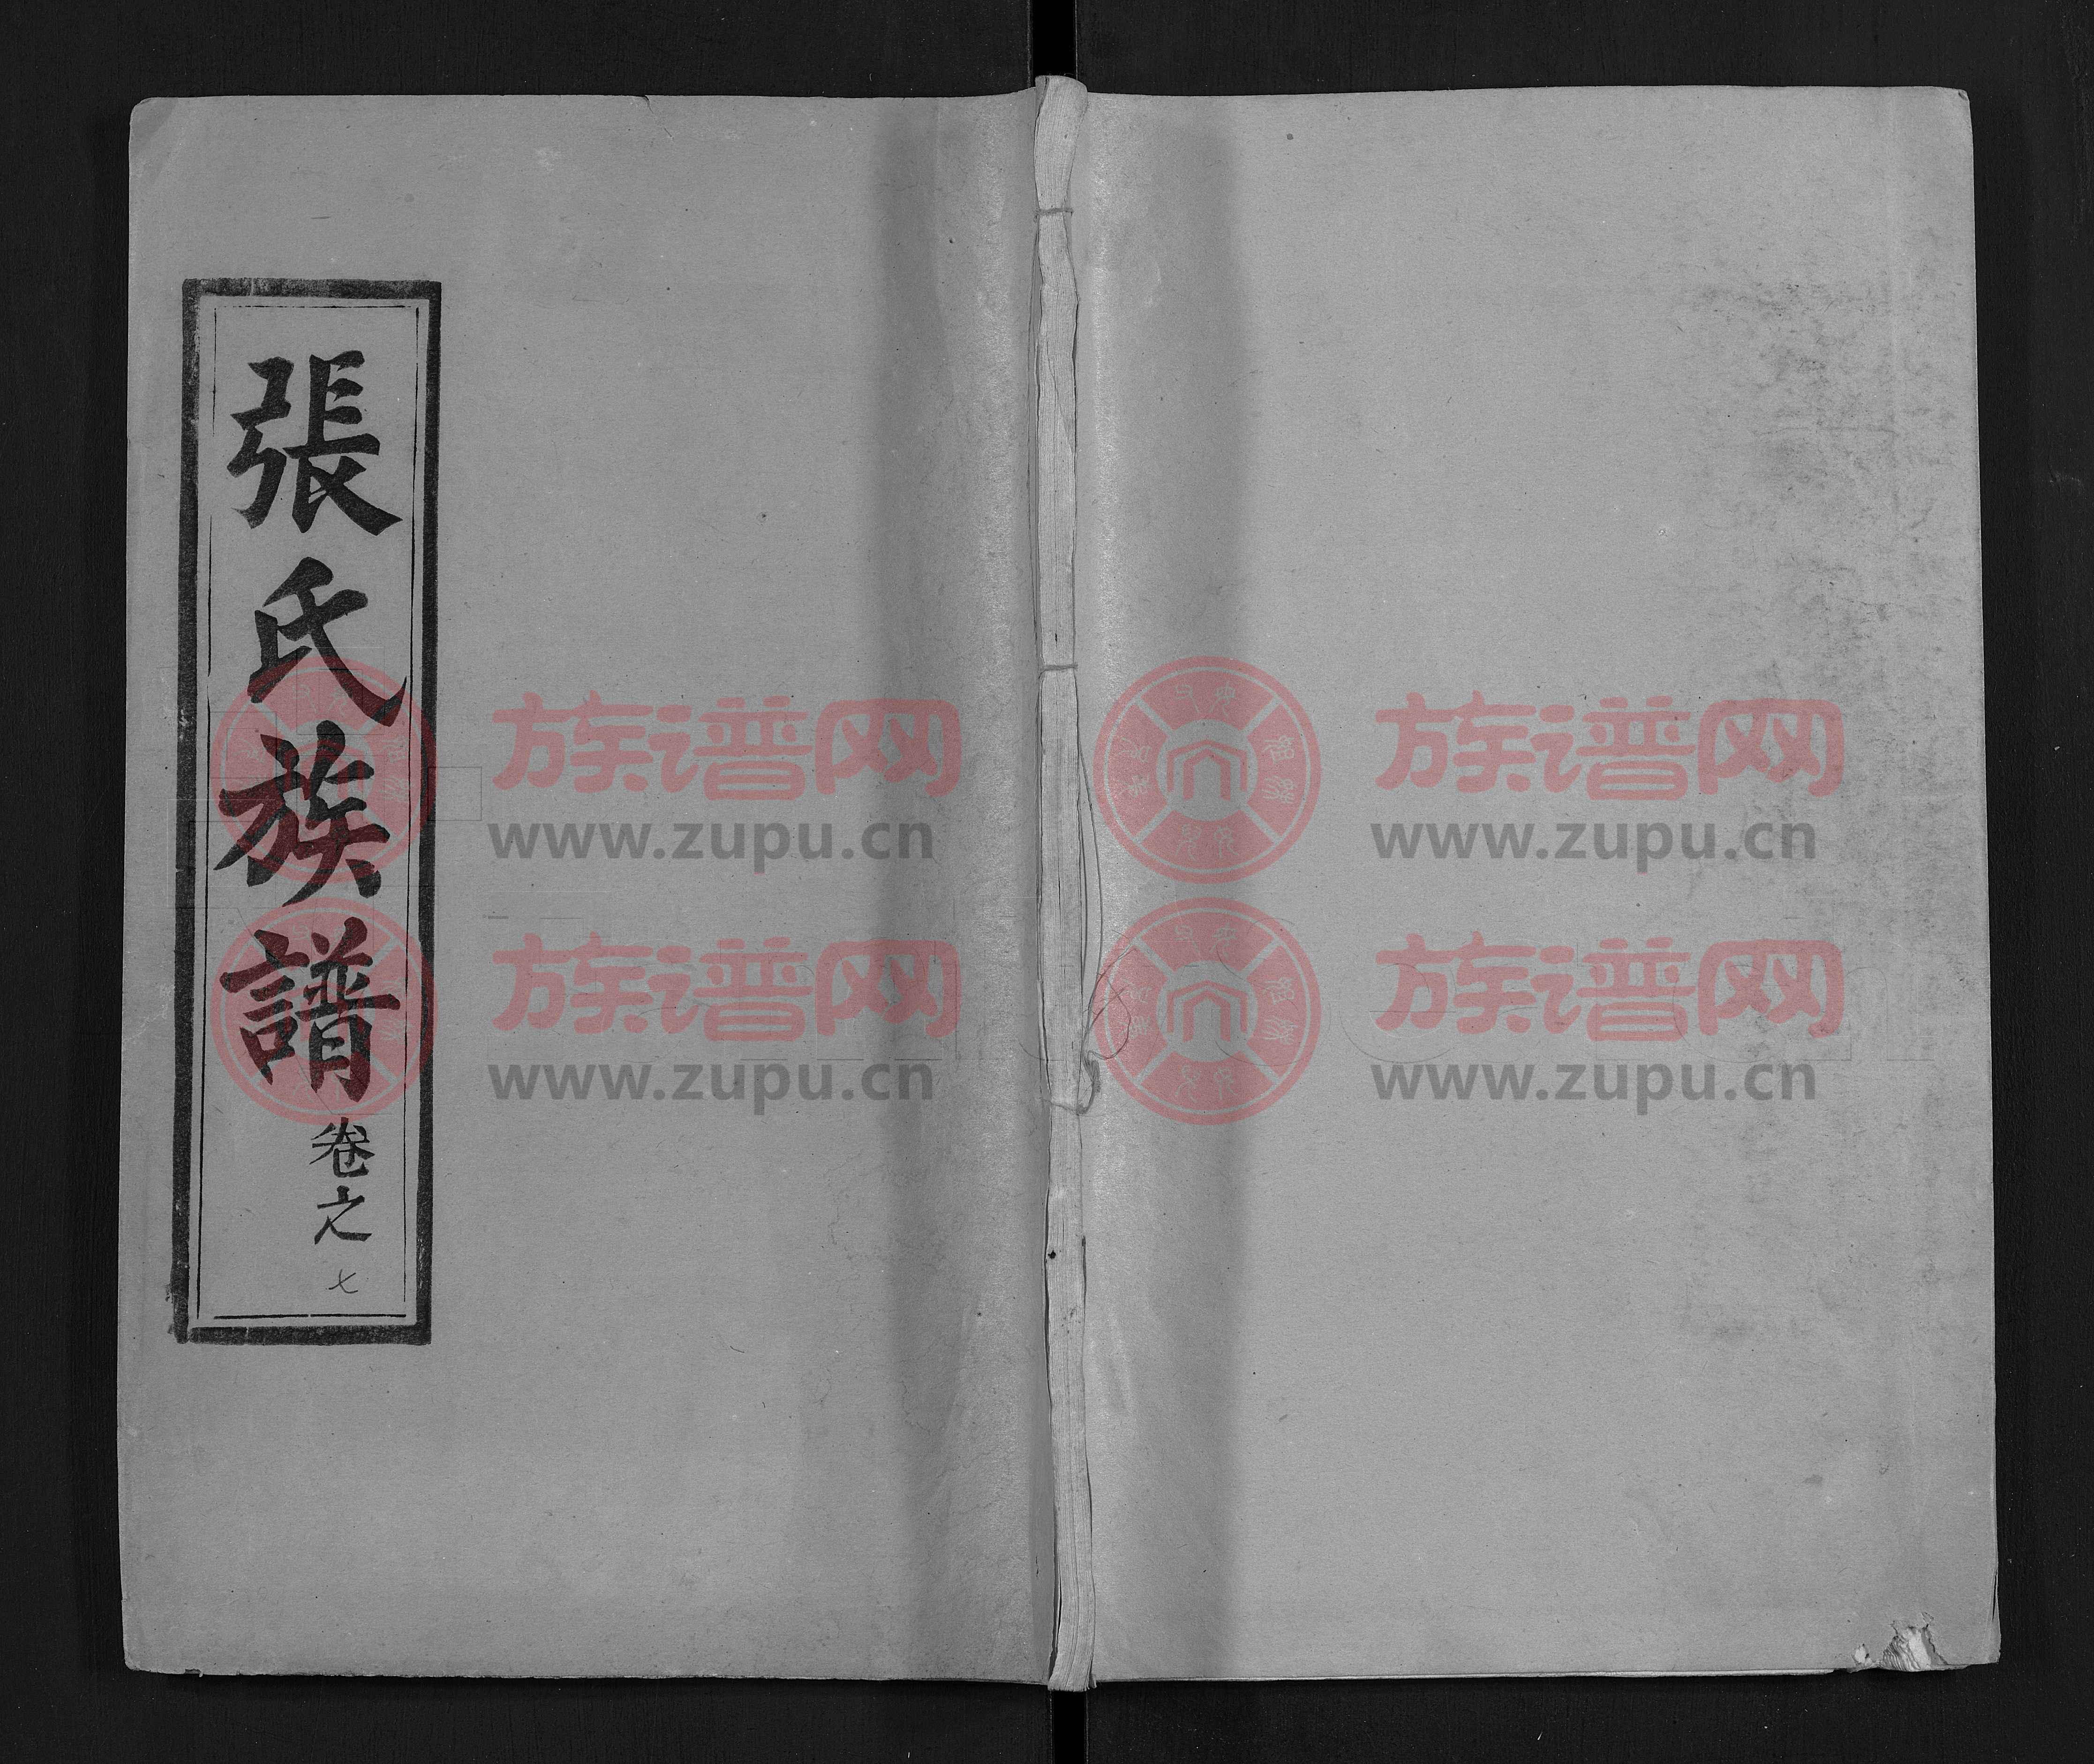 張氏族譜
卷之七
族谱网
www.zupu.cn
族谱网
www.zupu.cn
族谱网
www.zupu.cn
族谱网
www.zupu.cn